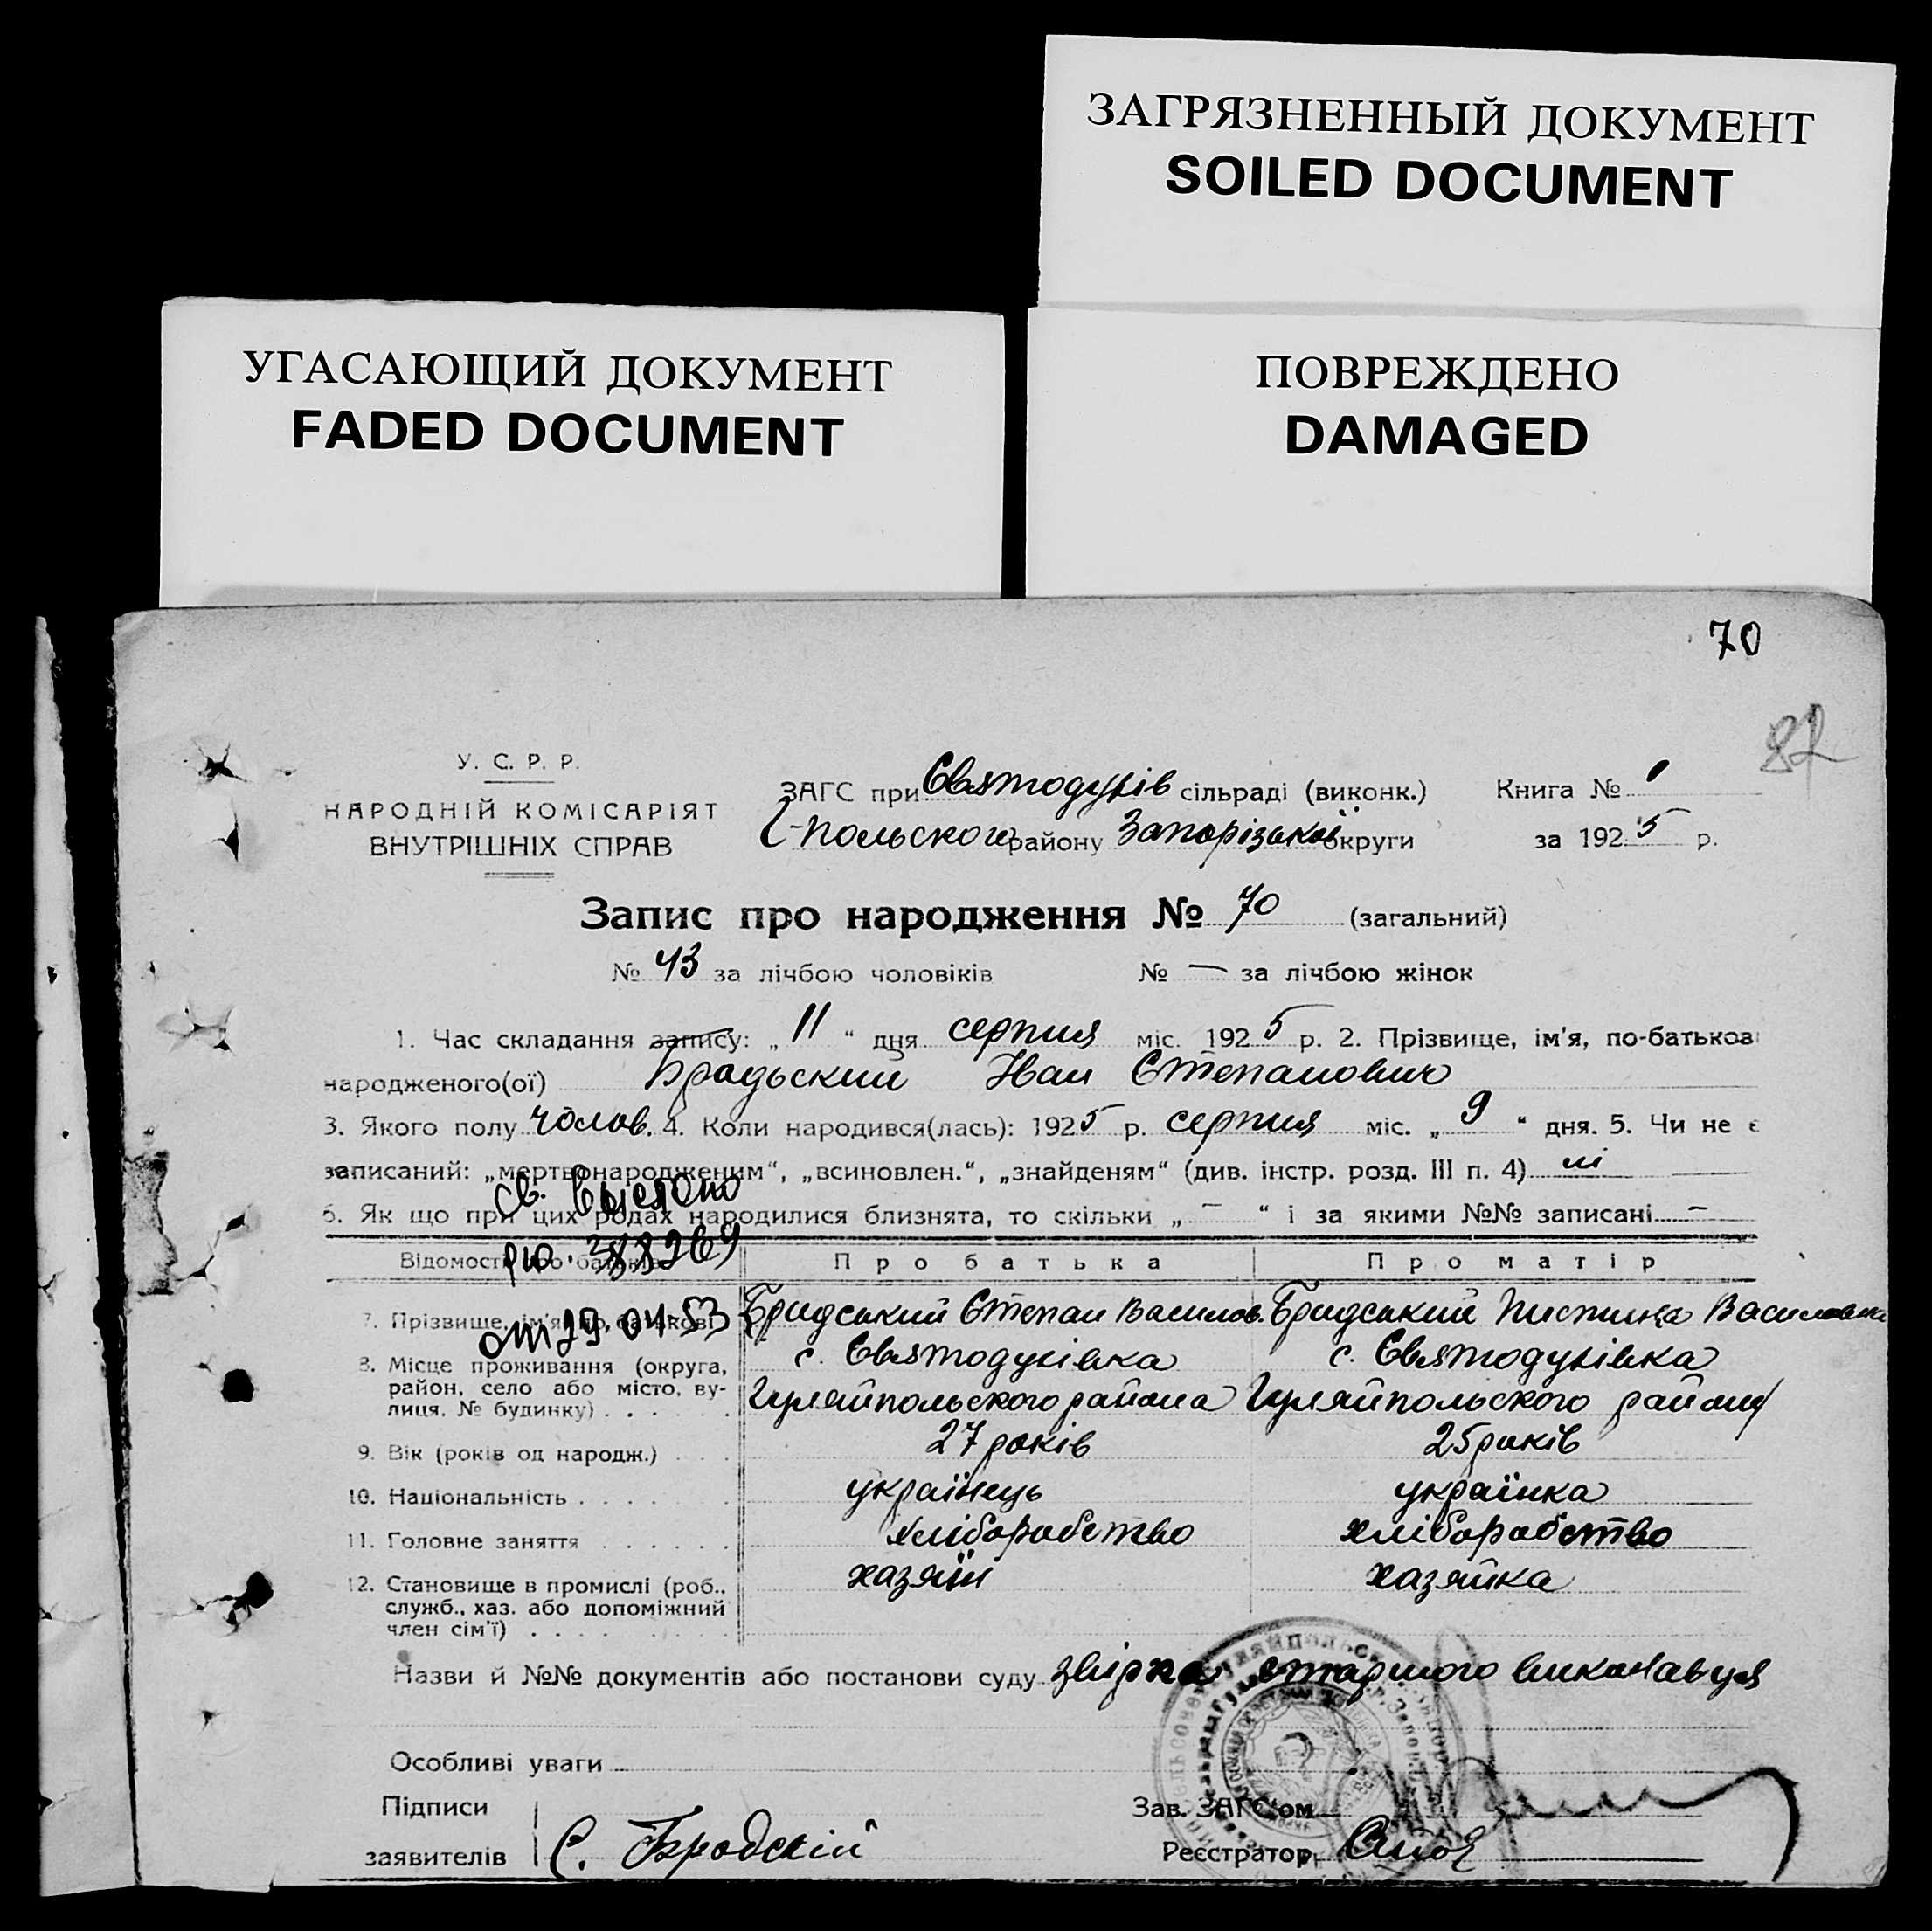 ЗАГРЯЗНЕННЫЙ ДОКУМЕНТ
SOILED DOCUMENT
УГАСАЮЩИЙ ДОКУМЕНТ
FADED DOCUMENT
ПОВРЕЖДЕНО
DAMAGED
70
82
У. С. Р. Р.
НАРОДНІЙ КОМІСАРІЯТ
ВНУТРІШНІХ СПРАВ
ЗАГС при Святодухів сільраді (виконк.) Книга № 1
Г-польского району Запорізької округи за 1925 р.
Запис про народження № 70 (загальний)
№ 43 за лічбою чоловіків № — за лічбою жінок
1. Час складання запису: „ 11 “ дня серпня міс. 1925 р. 2. Прізвище, ім'я, по-батькові
народженого(ої) Бродьский Иван Степанович
3. Якого полу чолов. 4. Коли народився(лась): 1925 р. серпня міс. „ 9 “ дня. 5. Чи не є
записаний: „мертвонародженим“, „всиновлен.“, „знайденям“ (див. інстр. розд. III п. 4) ні
6. Як що при цих родах народилися близнята, то скільки „ – “ і за якими №№ записані –
Св. выслано
от 29.04-53
Відомості про батьків
Про батька
Про матір
7. Прізвище, ім'я, по батькові
Бридський Степан Василов.
Бридський Василовна
8. Місце проживання (округа, район, село або місто, вулиця, № будинку)
с. Святодухівка
Гуляйпольского района
с. Святодухівка
Гуляйпольского району
9. Вік (років од народж.)
27 років
25 років
10. Національність
українець
українка
11. Головне заняття
хліборобство
хліборобство
12. Становище в промислі (роб., служб., хаз. або допоміжний член сім'ї)
хазяїн
хазяйка
Назви й №№ документів або постанови суду звірка старшого виконавця
Особливі уваги
Підписи
заявителів
С. Бродскій
Зав. ЗАГС'ом
Реєстратор